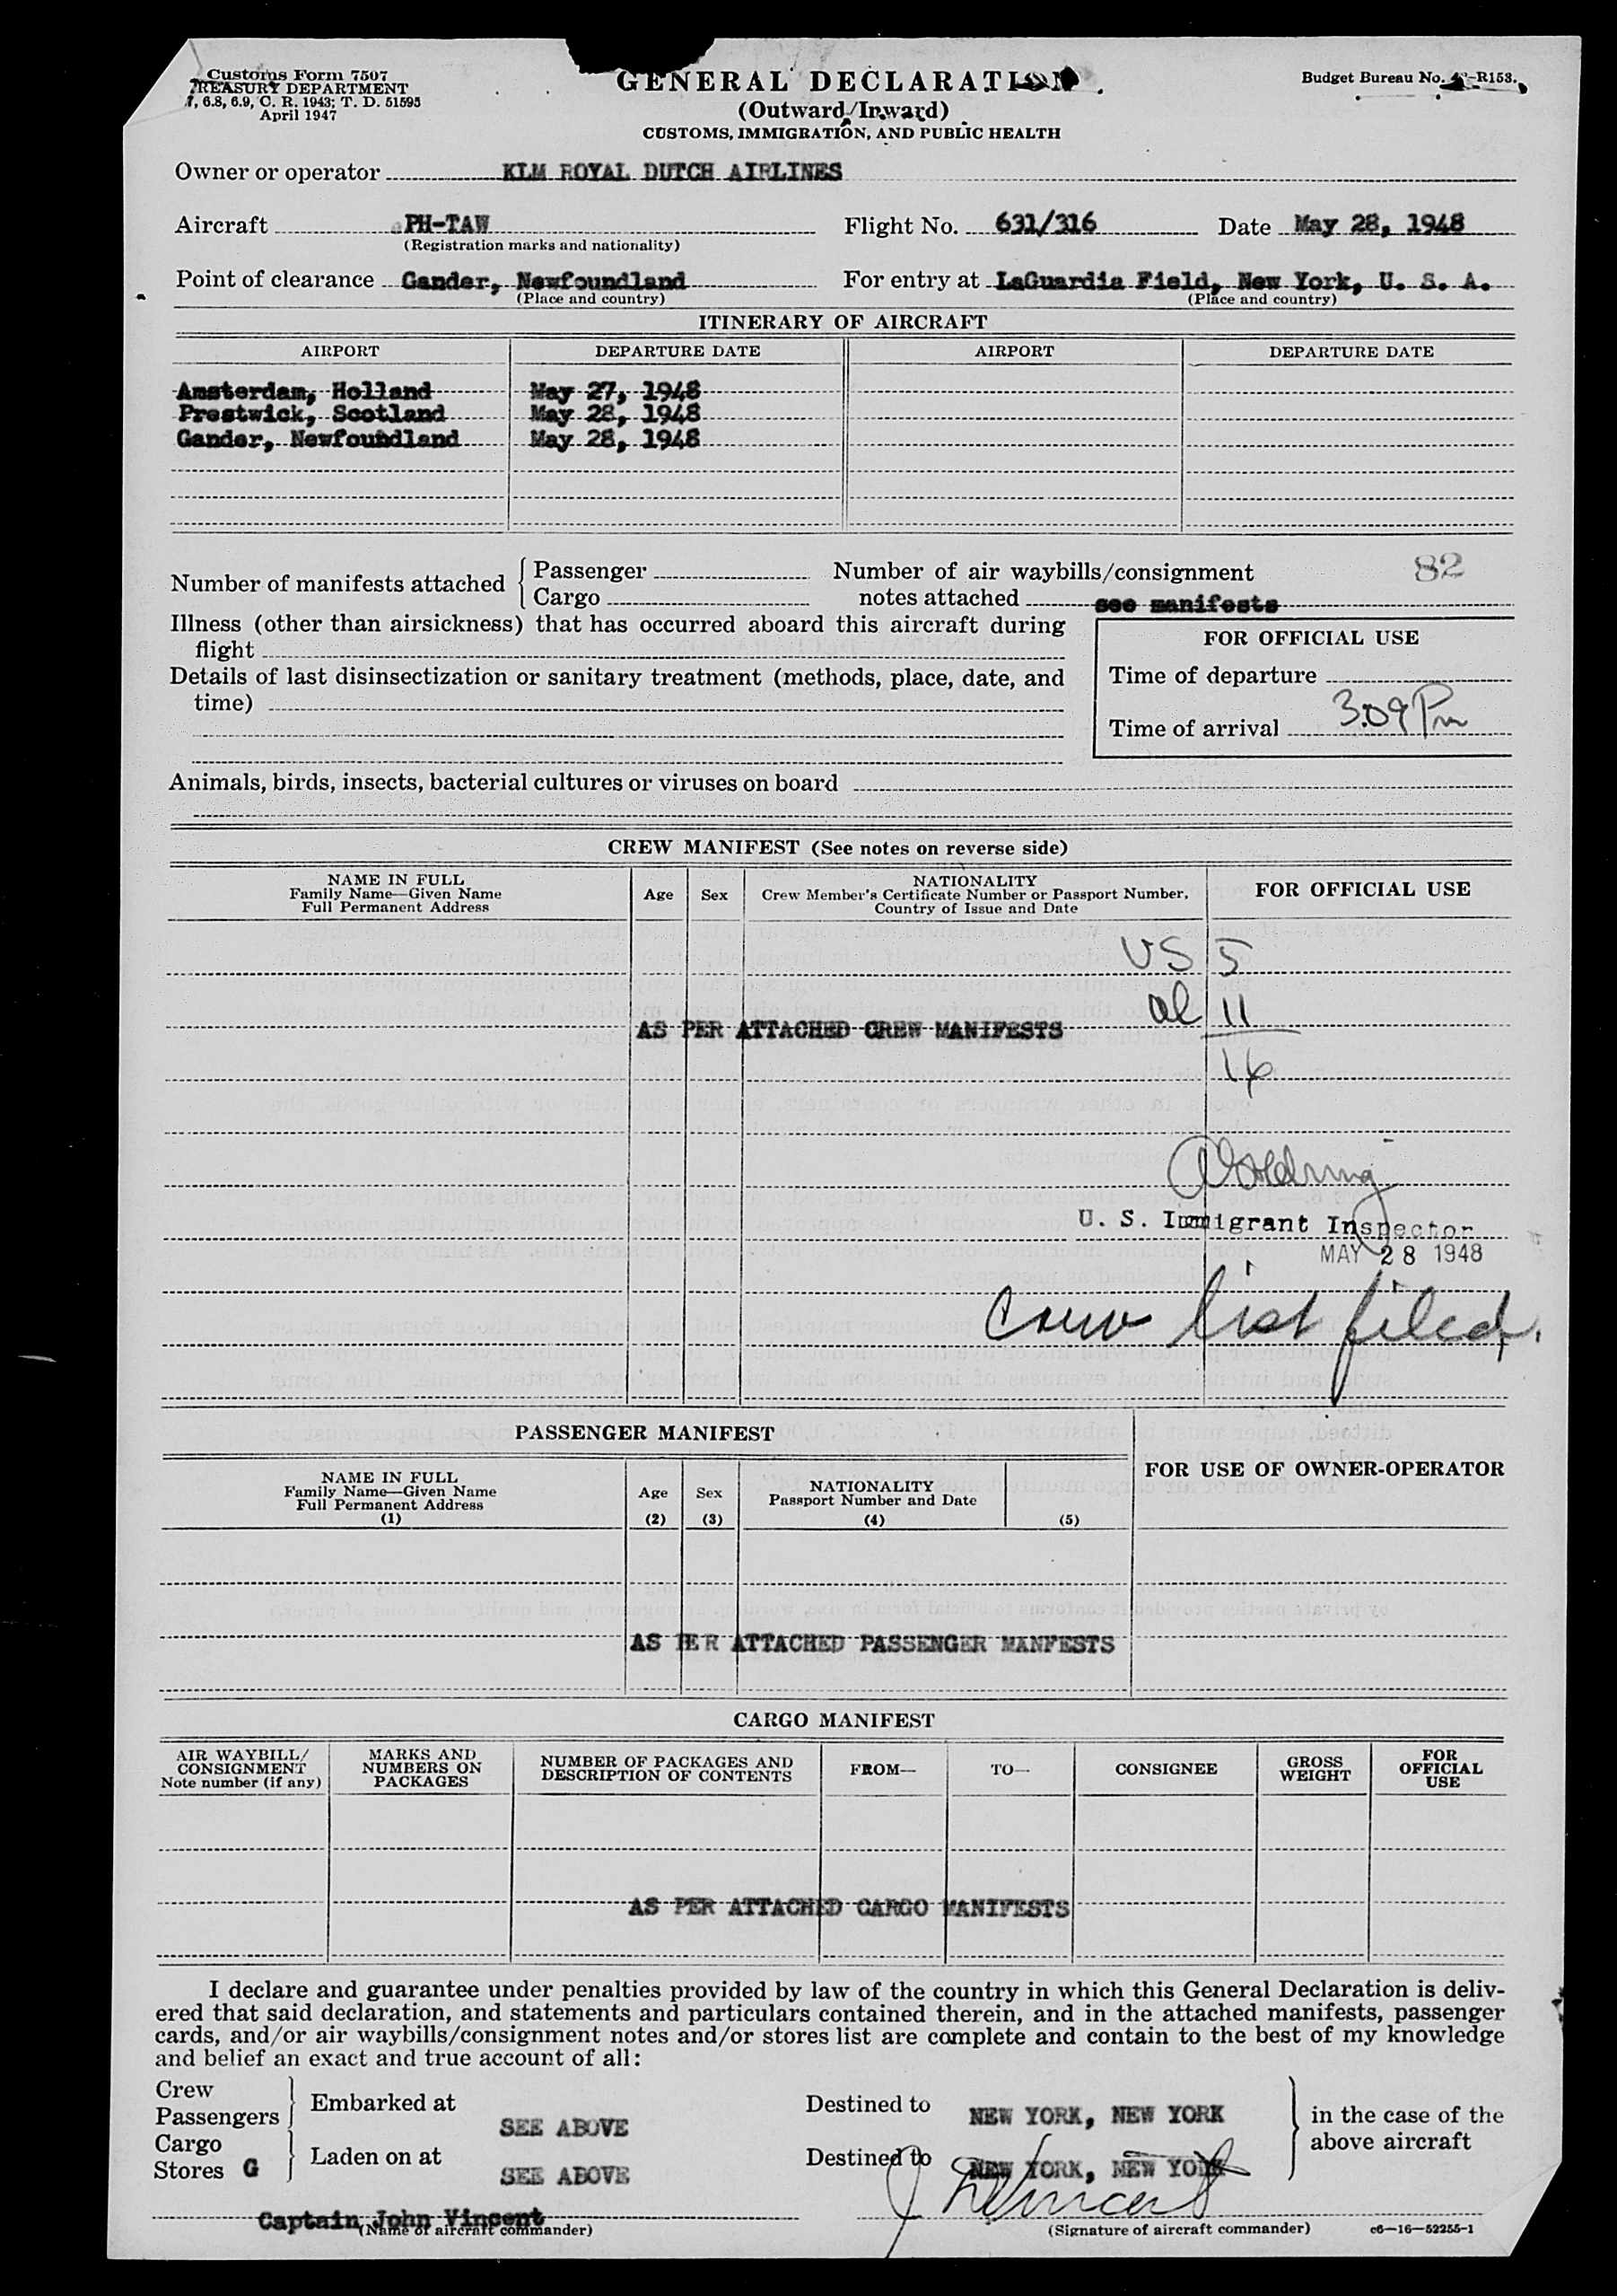 Customs Form 7507
TREASURY DEPARTMENT
7, 6.8, 6.9, C. R. 1943; T. D. 51595
April 1947
GENERAL DECLARATION
(Outward/Inward)
CUSTOMS, IMMIGRATION, AND PUBLIC HEALTH
Budget Bureau No. -R153.
Owner or operator KLM ROYAL DUTCH AIRLINES
Aircraft PH-TAW Flight No. 631/316 Date May 28, 1948
(Registration marks and nationality)
Point of clearance Gander, Newfoundland For entry at LaGuardia Field, New York, U. S. A.
(Place and country) (Place and country)
ITINERARY OF AIRCRAFT
AIRPORT DEPARTURE DATE AIRPORT DEPARTURE DATE
Amsterdam, Holland May 27, 1948
Prestwick, Scotland May 28, 1948
Gander, Newfoundland May 28, 1948
82
Number of manifests attached { Passenger Number of air waybills/consignment
Cargo notes attached see manifests
Illness (other than airsickness) that has occurred aboard this aircraft during
flight
Details of last disinsectization or sanitary treatment (methods, place, date, and
time)
FOR OFFICIAL USE
Time of departure
Time of arrival 3:09 Pm
Animals, birds, insects, bacterial cultures or viruses on board
CREW MANIFEST (See notes on reverse side)
NAME IN FULL
Family Name—Given Name
Full Permanent Address
Age
Sex
NATIONALITY
Crew Member's Certificate Number or Passport Number,
Country of Issue and Date
FOR OFFICIAL USE
US 5
al 11
AS PER ATTACHED CREW MANIFESTS
16
U. S. Immigrant Inspector
MAY 28 1948
Crew list filed.
PASSENGER MANIFEST
NAME IN FULL
Family Name—Given Name
Full Permanent Address
(1)
Age
(2)
Sex
(3)
NATIONALITY
Passport Number and Date
(4)
(5)
FOR USE OF OWNER-OPERATOR
AS PER ATTACHED PASSENGER MANFESTS
CARGO MANIFEST
AIR WAYBILL/
CONSIGNMENT
Note number (if any)
MARKS AND
NUMBERS ON
PACKAGES
NUMBER OF PACKAGES AND
DESCRIPTION OF CONTENTS
FROM—
TO—
CONSIGNEE
GROSS
WEIGHT
FOR
OFFICIAL
USE
AS PER ATTACHED CARGO MANIFESTS
I declare and guarantee under penalties provided by law of the country in which this General Declaration is deliv-
ered that said declaration, and statements and particulars contained therein, and in the attached manifests, passenger
cards, and/or air waybills/consignment notes and/or stores list are complete and contain to the best of my knowledge
and belief an exact and true account of all:
Crew
Passengers } Embarked at SEE ABOVE Destined to NEW YORK, NEW YORK
Cargo
Stores G } Laden on at SEE ABOVE Destined to NEW YORK, NEW YORK
} in the case of the
above aircraft
Captain John Vincent
(Name of aircraft commander)
J Vincent
(Signature of aircraft commander)
c6—16—52255-1